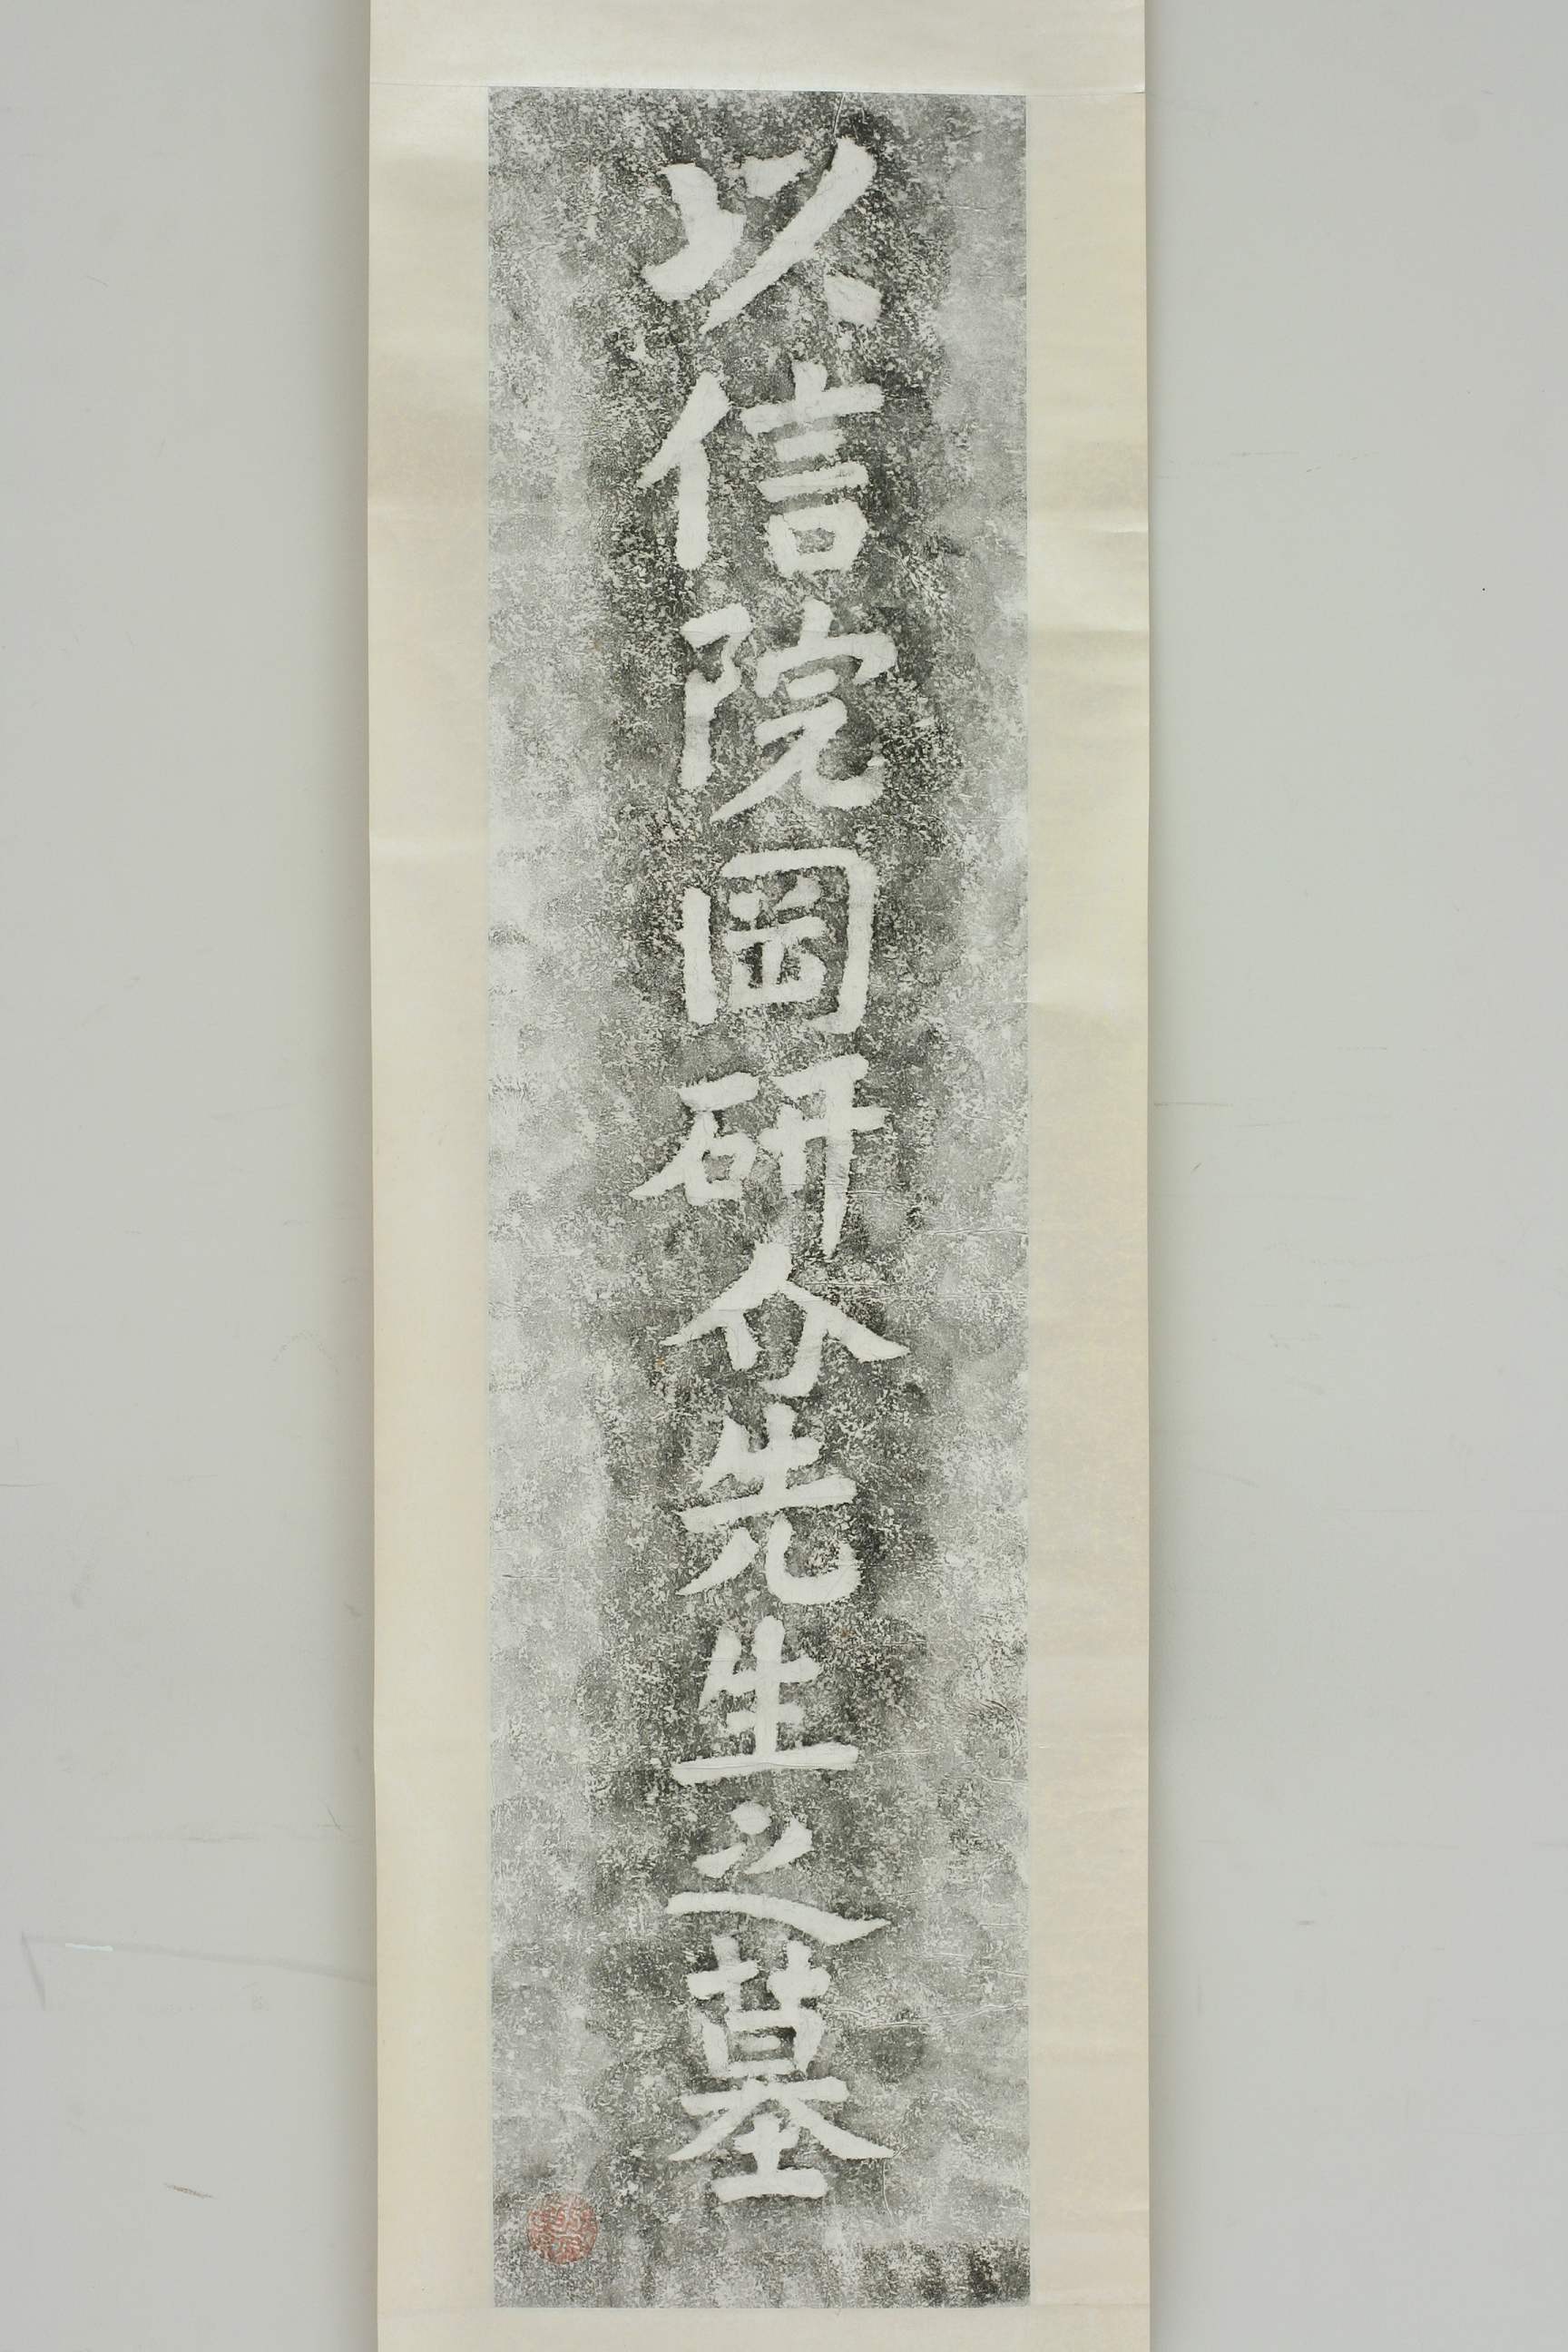 以信院岡研介先生之墓